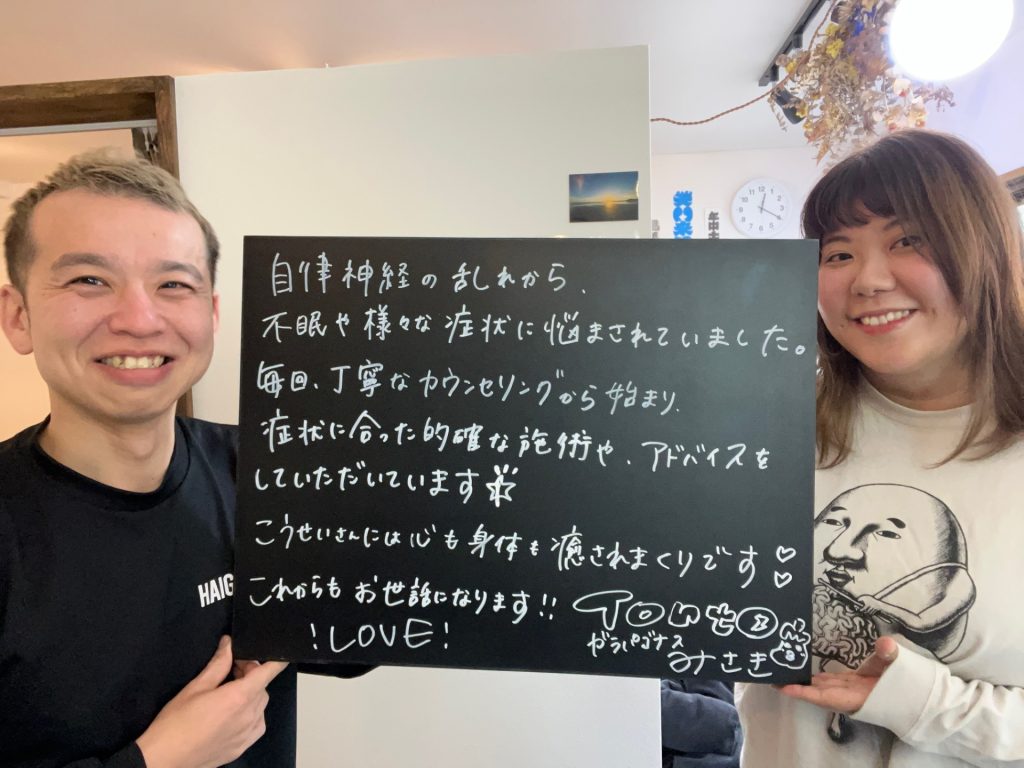 自律神経の乱れから、
不眠や様々な症状に悩まされていました。
毎回、丁寧なカウンセリングから始まり、
症状に合った的確な施術や、アドバイスを
していただいています
こうせいさんには心も身体も癒されまくりです♡♡
これからもお世話になります!!
!LOVE!
ガラパゴナス
みさき
HAIG
年中
12 1 2 3 4 5 6 7 8 9 10 11